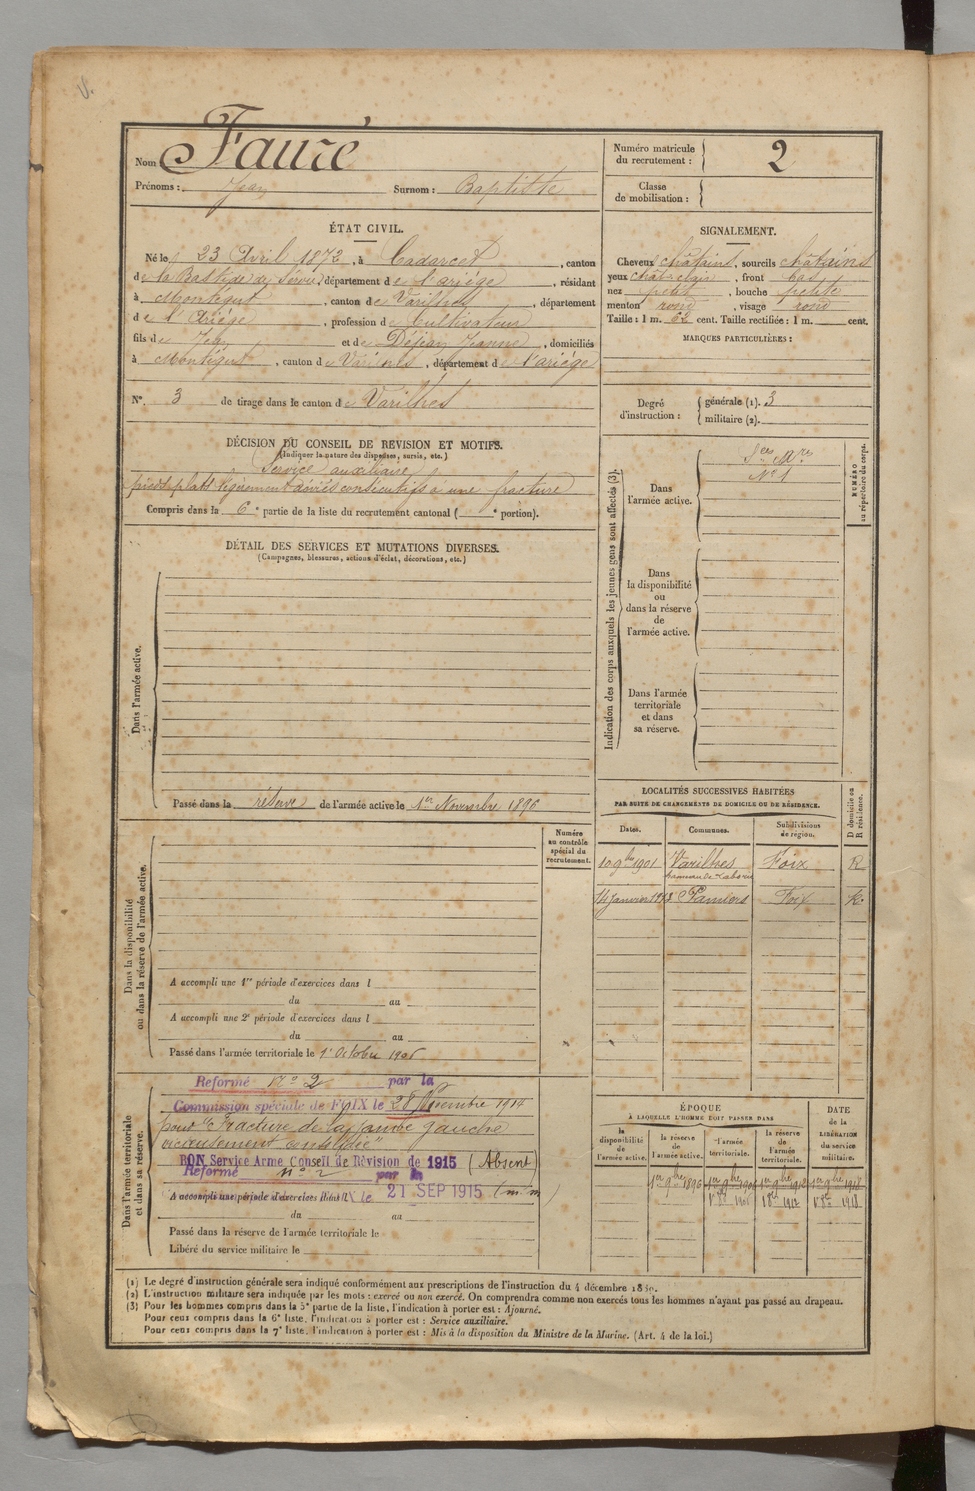 Nom Fauré
Prénoms : Jean Surnom : Baptiste
Numéro matricule
du recrutement : 2
Classe
de mobilisation :
ÉTAT CIVIL.
Né le 23 Avril 1872, à Cadarcet, canton
de la Bastide de Sérou, département de l'ariége, résidant
à Montégut, canton de Varilhes, département
de l'Ariége, profession de Cultivateur
fils de Jean et de Dejean Jeanne, domiciliés
à Montégut, canton de Varilhes, département de l'ariége
N°. 3 de tirage dans le canton de Varilhes
SIGNALEMENT.
Cheveux châtains, sourcils châtains
yeux chât-clair, front bas
nez petit, bouche petite
menton rond, visage rond
Taille : 1 m. 62 cent. Taille rectifiée : 1 m. cent.
MARQUES PARTICULIÈRES :
Degré
d'instruction :
générale (1). 3
militaire (2).
DÉCISION DU CONSEIL DE REVISION ET MOTIFS.
(Indiquer la nature des dispenses, sursis, etc.)
Service auxiliaire
pieds plats légèrement déviés consécutifs à une fracture
Compris dans la 6e partie de la liste du recrutement cantonal ( e portion).
DÉTAIL DES SERVICES ET MUTATIONS DIVERSES.
(Campagnes, blessures, actions d'éclat, décorations, etc.)
Dans l'armée active.
Passé dans la réserve de l'armée active le 1er Novembre 1896
Indication des corps auxquels les jeunes gens sont affectés (3).
Dans
l'armée active.
Sces Aires
N° 1
NUMÉRO
au répertoire du corps.
Dans
la disponibilité
ou
dans la réserve
de
l'armée active.
Dans l'armée
territoriale
et dans
sa réserve.
Numéro
au contrôle
spécial du
recrutement.
Dans la disponibilité
ou dans la réserve de l'armée active.
A accompli une 1re période d'exercices dans l
du au
A accompli une 2e période d'exercices dans l
du au
Passé dans l'armée territoriale le 1er Octobre 1906
LOCALITÉS SUCCESSIVES HABITÉES
PAR SUITE DE CHANGEMENTS DE DOMICILE OU DE RÉSIDENCE.
D domicile ou
R résidence.
Dates. Communes. Subdivisions
de région.
10 9bre 1901 Varilhes Foix R
14 Janvier 1913 Pamiers Foix R.
Dans l'armée territoriale
et dans sa réserve.
Reformé n° 2 par la
Commission spéciale de FOIX le 28 Novembre 1914
pour "Fracture de la jambe gauche
vicieusement consolidée"
BON Service Armé Conseil de Révision de 1915 (Absent)
Reformé n° 2 par la
A accompli une période d'exercices dans l le 21 SEP 1915 (m. m.)
du au
Passé dans la réserve de l'armée territoriale le
Libéré du service militaire le
ÉPOQUE
À LAQUELLE L'HOMME DOIT PASSER DANS
DATE
de la
LIBÉRATION
du service
militaire.
la
disponibilité
de
l'armée active.
la réserve
de
l'armée active.
l'armée
territoriale.
la réserve
de
l'armée
territoriale.
1er 9bre 1896 1er 9bre 1906 1er 9bre 1912 1er 9bre 1918
1er 8bre 1906 1er 8bre 1912 1er 8bre 1918
(1) Le degré d'instruction générale sera indiqué conformément aux prescriptions de l'instruction du 4 décembre 1890.
(2) L'instruction militaire sera indiquée par les mots : exercé ou non exercé. On comprendra comme non exercés tous les hommes n'ayant pas passé au drapeau.
(3) Pour les hommes compris dans la 5e partie de la liste, l'indication à porter est : Ajourné.
Pour ceux compris dans la 6e liste, l'indication à porter est : Service auxiliaire.
Pour ceux compris dans la 7e liste, l'indication à porter est : Mis à la disposition du Ministre de la Marine. (Art. 4 de la loi.)